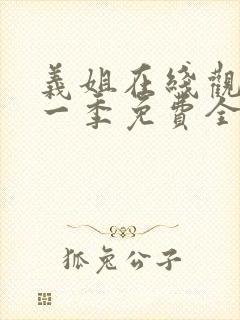 義姐在綫觀
一季免費全
狐兔公子